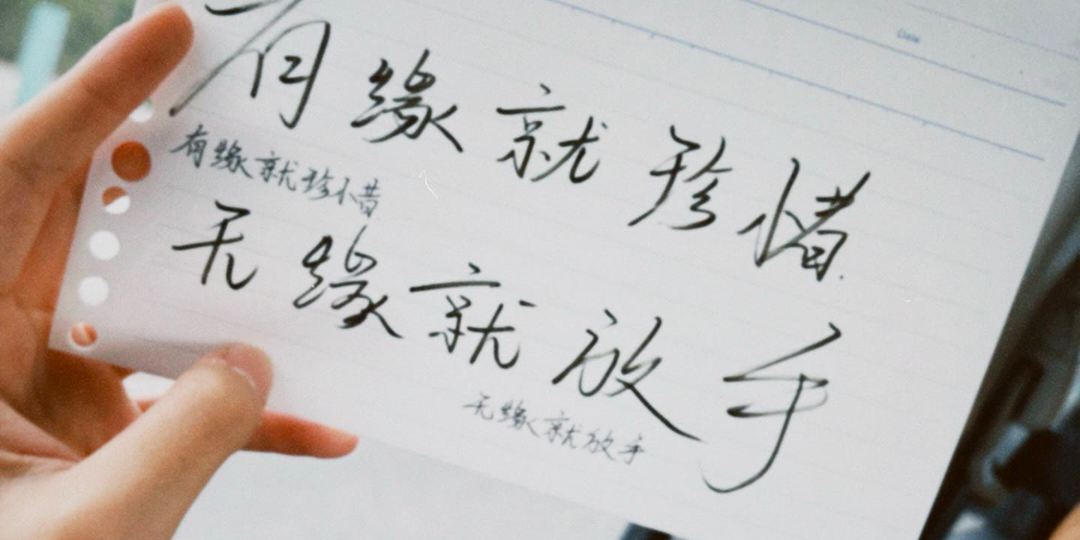 Date
有缘就珍惜
有缘就珍惜
无缘就放手
无缘就放手